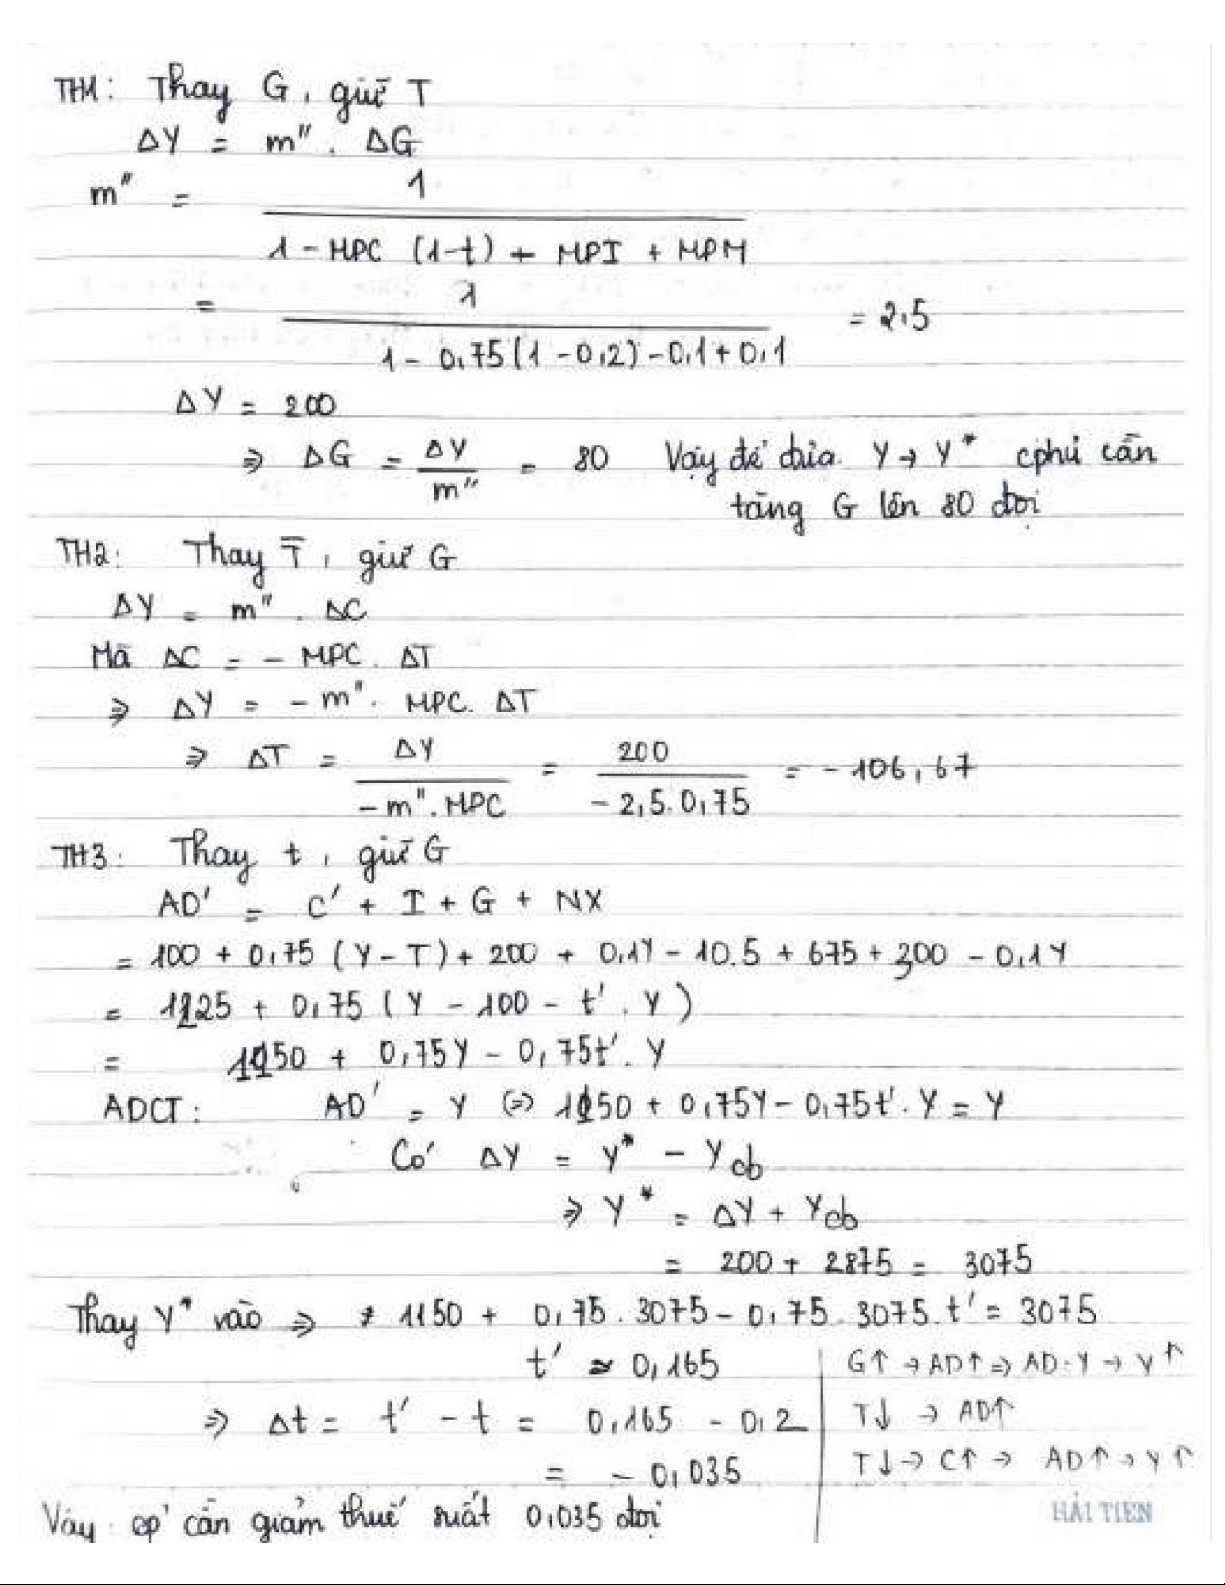 TH1: Thay G, giữ T
ΔY = m". ΔG
m" = 1 / (1 - MPC (1-t) + MPI + MPM)
= 1 / (1 - 0,75(1-0,2) - 0,1 + 0,1) = 2,5
ΔY = 200
⇒ ΔG = ΔY / m" = 80 Vậy để đưa Y → Y* cphủ cần
tăng G lên 80 đvị
TH2: Thay T̄, giữ G
ΔY = m". ΔC
Mà ΔC = - MPC. ΔT
⇒ ΔY = - m". MPC. ΔT
⇒ ΔT = ΔY / (-m". MPC) = 200 / (-2,5. 0,75) = -106,67
TH3: Thay t, giữ G
AD' = C' + I + G + NX
= 100 + 0,75 (Y - T) + 200 + 0,1Y - 10.5 + 675 + 300 - 0,1Y
= 1225 + 0,75 (Y - 100 - t'. Y)
= 1150 + 0,75Y - 0,75t'. Y
ADCT: AD' = Y (=) 1150 + 0,75Y - 0,75t'. Y = Y
Có ΔY = Y* - Ycb
⇒ Y* = ΔY + Ycb
= 200 + 2875 = 3075
Thay Y* vào ⇒ 1150 + 0,75. 3075 - 0,75. 3075. t' = 3075
t' ≈ 0,165
⇒ Δt = t' - t = 0,165 - 0,2
= - 0,035
Vậy cp' cần giảm thuế suất 0,035 đvị
G↑ → AD↑ ⇒ AD=Y → Y↑
T↓ → AD↑
T↓ → C↑ → AD↑ → Y↑
HẢI TIẾN